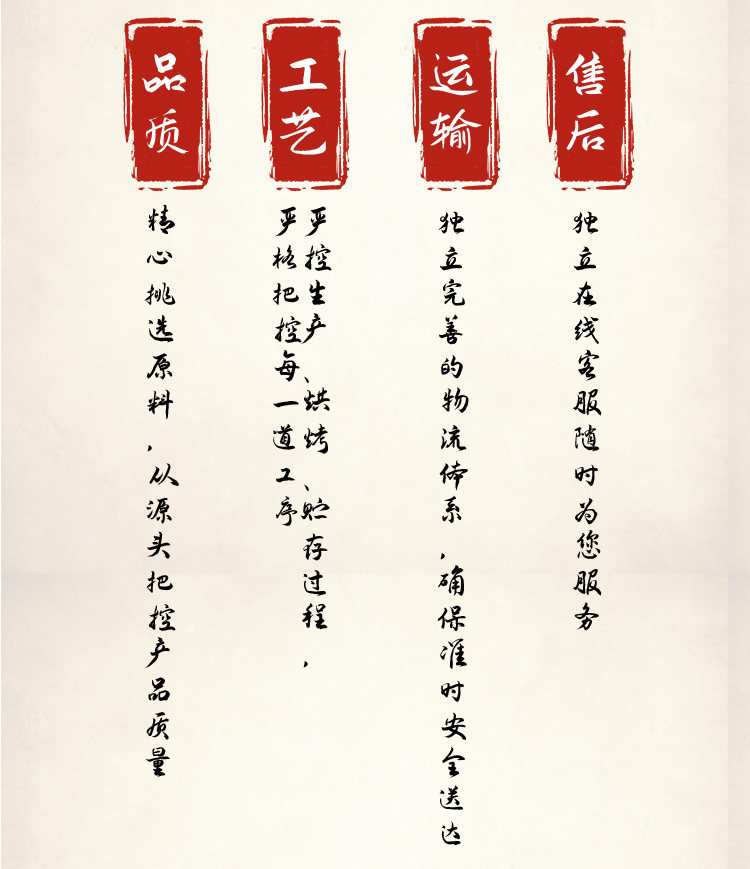 品质
精心挑选原料，从源头把控产品质量
工艺
严控生产、烘烤、贮存过程，
严格把控每一道工序
运输
独立完善的物流体系，确保准时安全送达
售后
独立在线客服随时为您服务